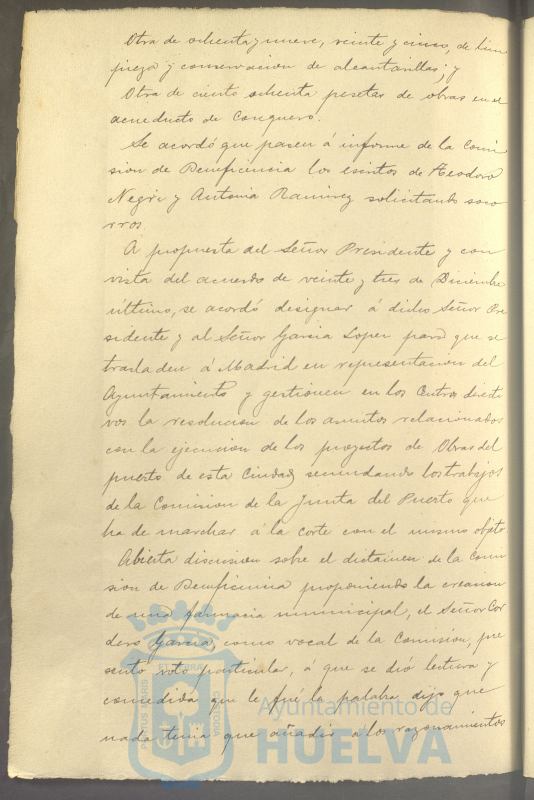 Otra de ochenta y nueve, veinte y cinco, de lim
pieza y conservacion de alcantarillas; y
Otra de ciento ochenta pesetas de obras en el
acueducto de Conquero.
Se acordó que pasen á informe de la Comi
sion de Beneficencia los escritos de Teodoro
Negri y Antonia Ramirez solicitando soco
rros.
A propuesta del Señor Presidente y con
vista del acuerdo de veinte y tres de Diciembre
último, se acordó designar á dicho Señor Pre
sidente y al Señor Garcia Lopez para que se
trasladen á Madrid en representacion del
Ayuntamiento y gestionen en los Centros directi
vos la resolucion de los asuntos relacionados
con la ejecucion de los proyectos de Obras del
puerto de esta Ciudad secundando los trabajos
de la Comision de la Junta del Puerto que
ha de marchar á la corte con el mismo objeto.
Abierta discusion sobre el dictamen de la Comi
sion de Beneficencia proponiendo la creacion
de una farmacia municipal, el Señor Cor
dero Garcia, como vocal de la Comision, pre
sentó voto particular, á que se dió lectura y
concedida que le fué la palabra dijo que
nada tenia que añadir á los razonamientos
PORTUS MARIS ET TERRÆ CUSTODIA
Ayuntamiento de
HUELVA